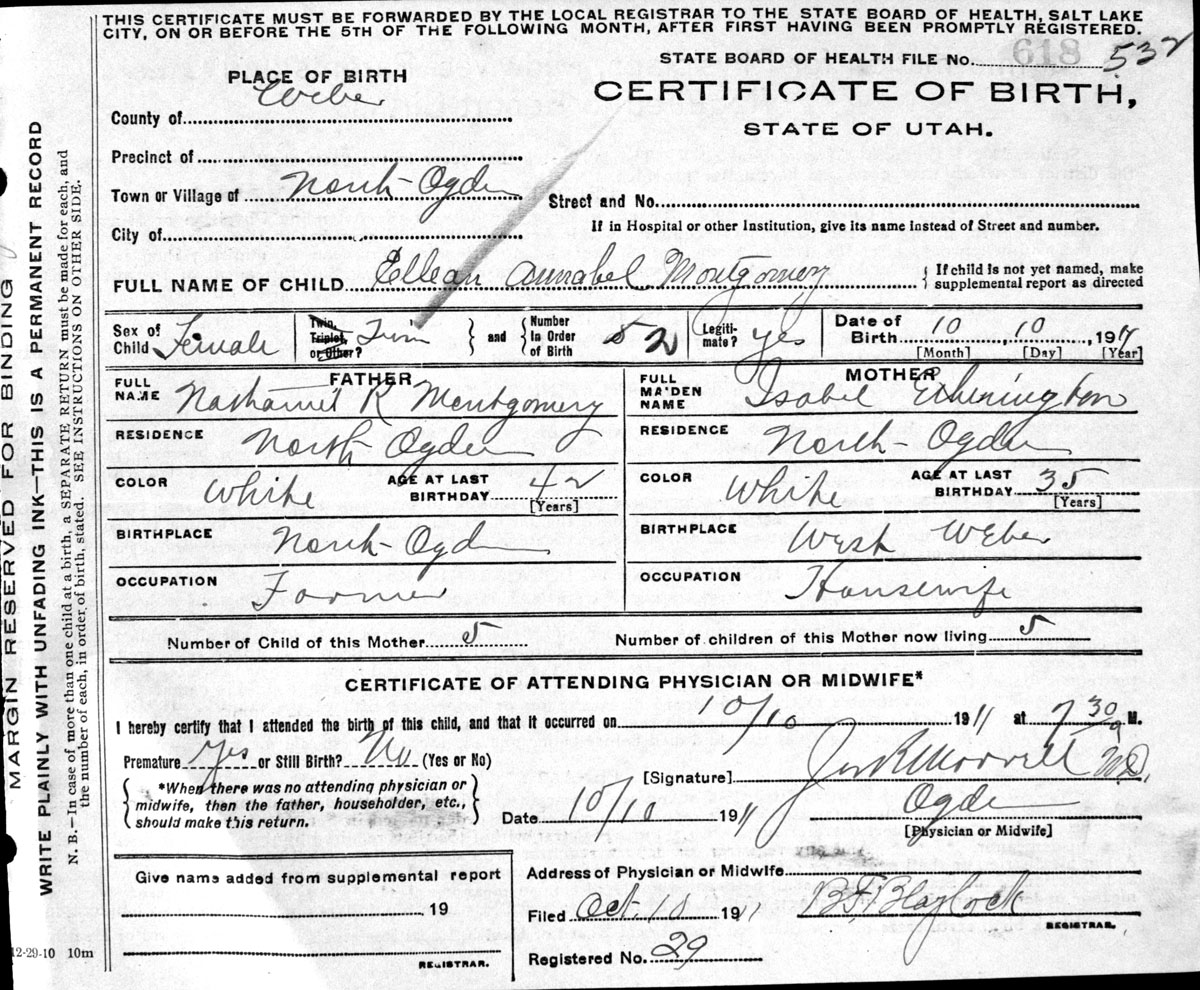 THIS CERTIFICATE MUST BE FORWARDED BY THE LOCAL REGISTRAR TO THE STATE BOARD OF HEALTH, SALT LAKE
CITY, ON OR BEFORE THE 5TH OF THE FOLLOWING MONTH, AFTER FIRST HAVING BEEN PROMPTLY REGISTERED.
STATE BOARD OF HEALTH FILE No. 618 532
PLACE OF BIRTH
CERTIFICATE OF BIRTH,
STATE OF UTAH.
County of Weber
Precinct of
Town or Village of North-Ogden
Street and No.
City of
If in Hospital or other Institution, give its name instead of Street and number.
FULL NAME OF CHILD Ellean Annabel Montgomery
{ If child is not yet named, make
supplemental report as directed
Sex of Child Female
Twin, Triplet, or Other? Twin
} and {
Number In Order of Birth 2
Legiti-mate? yes
Date of Birth 10, 10, 1911
[Month] [Day] [Year]
FATHER
MOTHER
FULL NAME Nathaniel R Montgomery
FULL MAIDEN NAME Isabel Etherington
RESIDENCE North Ogden
RESIDENCE North-Ogden
COLOR White AGE AT LAST BIRTHDAY 42 [Years]
COLOR White AGE AT LAST BIRTHDAY 35 [Years]
BIRTHPLACE North-Ogden
BIRTHPLACE West Weber
OCCUPATION Farmer
OCCUPATION Housewife
Number of Child of this Mother 5
Number of children of this Mother now living 5
CERTIFICATE OF ATTENDING PHYSICIAN OR MIDWIFE*
I hereby certify that I attended the birth of this child, and that it occurred on 10/10 1911 at 7 30 a M.
Premature yes or Still Birth? No (Yes or No)
[Signature] M.D.
{ *When there was no attending physician or
midwife, then the father, householder, etc.,
should make this return. }
Date 10/10 1911
Ogden
[Physician or Midwife]
Give name added from supplemental report
19
REGISTRAR.
Address of Physician or Midwife
Filed Oct. 10 1911 B F Blaylock
REGISTRAR.
Registered No. 29
12-29-10 10m
MARGIN RESERVED FOR BINDING
WRITE PLAINLY WITH UNFADING INK—THIS IS A PERMANENT RECORD
N. B.—In case of more than one child at a birth, a SEPARATE RETURN must be made for each, and
the number of each, in order of birth, stated. SEE INSTRUCTIONS ON OTHER SIDE.